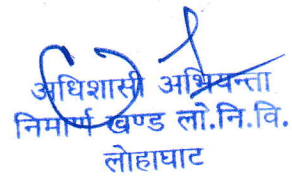 अधिशासी अभियन्ता
निमार्ण खण्ड लो.नि.वि.
लोहाघाट